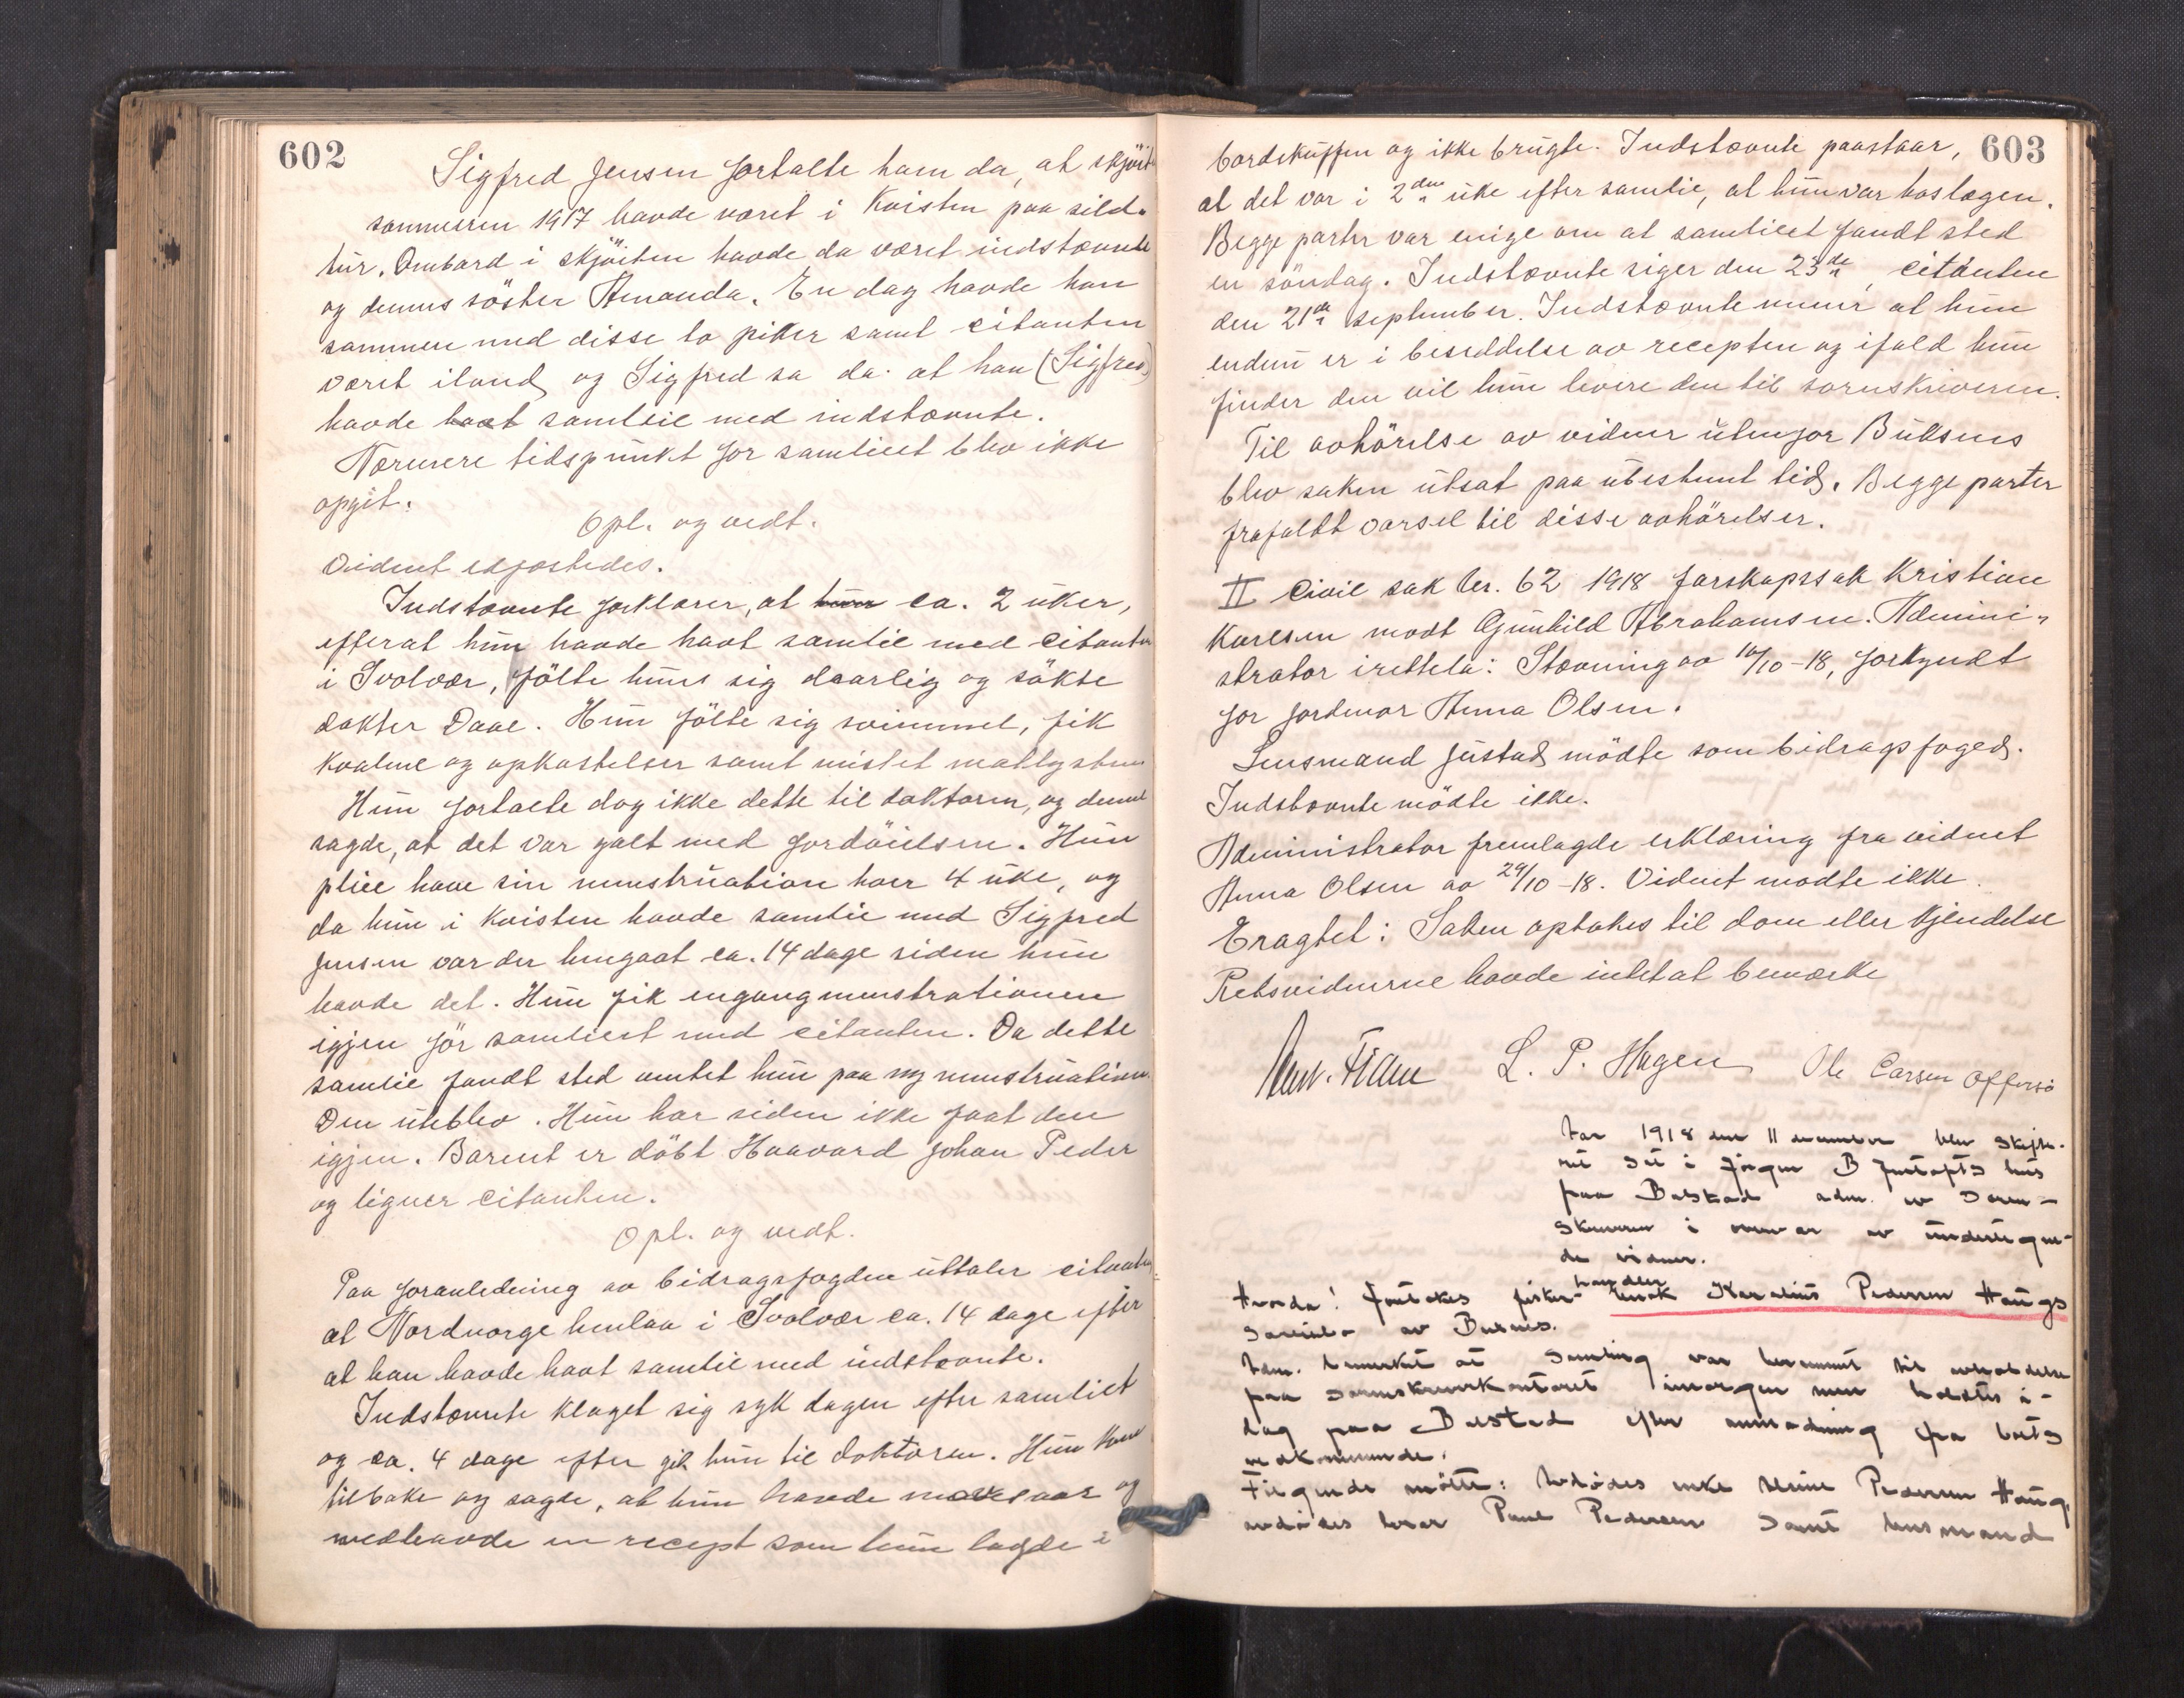 602
Sigfred Jensen fortalte ham da, at skjöit
sommeren 1917 havde været i Kvisten paa silde
tur. Ombord i skjöiten havde da været indstævnte
og dennes söster Amanda. En dag havde han
sammen med disse to piker samt citanten
været iland og Sigfred sa da at han (Sigfred)
havde havt samleie med indstævnte.
Nærmere tidspunkt for samleiet blev ikke
opgit.
Opl. og vedt.
Vidnet

Indstævnte forklarer, at hun ca. 2 uker,
efterat hun havde havt samleie med citanten
i Svolvær, fölte huns sig daarlig og sökte
doktor Daae. Hun fölte sig svimmel, fik
kvalme og opkastelser samt mistet matlysten
Hun fortalte dog ikke dette til doktoren, og denne
sagde, at det var galt med fordöielsen. Hun
pleie have sin menstruation hver 4 uke, og
da hun i Kvisten havde samleie med Sigfred
Jensen var der hengaat ca. 14 dage siden hun
havde det. Hun fik engang menstrationen
igjen för samleiet med citanten. Da dette
samleie fandt sted ventet hun paa ny menstruation.
Den uteblev. Hun har siden ikke faat den
igjen. Barnet er döbt Haavard Johan Peder
og ligner citanten.
Opl. og vedt.
Paa foranledning av bidragsfogden uttaler citanten
at Nordnorge henlaa i Svolvær ca. 14 dage efter
at han havde havt samleie med indstævnte.
Indstævnte klaget sig syk dagen efter samleiet
og ca. 4 dage efter gik hun til doktoren. Hun kom
tilbake og sagde, at hun havde mavesaar og
medhavde en recept som hun lagde i
603
bordskuffen og ikke brugte. Indstævnte paastaar,
at det var i 2den uke efter samleie, at hun var hos lægen.
Begge parter var enige om at samleiet fandt sted
en söndag. Indstævnte siger den 23de, citanten
den 21de september. Indstævnte mener at hun
endnu er i besiddelse av recepten og ifald hun
finder den vil hun levere den til sorenskriveren.
Til avhörelse av vidner utenfor Buksnes
blev saken utsat paa ubestemt tid. Begge parter
frafaldt varsel til disse avhörelser.
II Civil sak nr. 62 1918 farskapssak Kristian
Karlsen mot Gunhild Abrahamsen. Admini-
strator irettela: Stævning av 10/10-18, forkyndt
for jordmor Anna Olsen.
Lensmand Justad mödte som bidragsfoged.
Indstævnte mödte ikke.
Administrator fremlagde erklæring fra vidnet
Anna Olsen av 29/10-18. Vidnet mödte ikke.
Eragtet: Saken optakes til dom eller kjendelse
Retsvidnerne havde intet at bemærke
L. P. Hagen Ole Larsen Offersö
Aar 1918 den 11 december blev skifte-
ret sat i Jörgen B hus
paa Balstad adm. av Soren-
skriveren i nærvær av undertegne-
de vidner.
Hvorda! Foretokes fisker- handler Karelius Pedersen Haugs
av Buksnes.
Adm. bemerket at Samling var berammet til avholdelse
paa Sorenskriverkontoret imorgen men holdtes i-
dag paa Balstad efter anmodning fra boets
vedkommende.
Fölgende mötte: Avdödes enke Pedersen Haug,
avdödes bror Paul Pedersen samt lensmand